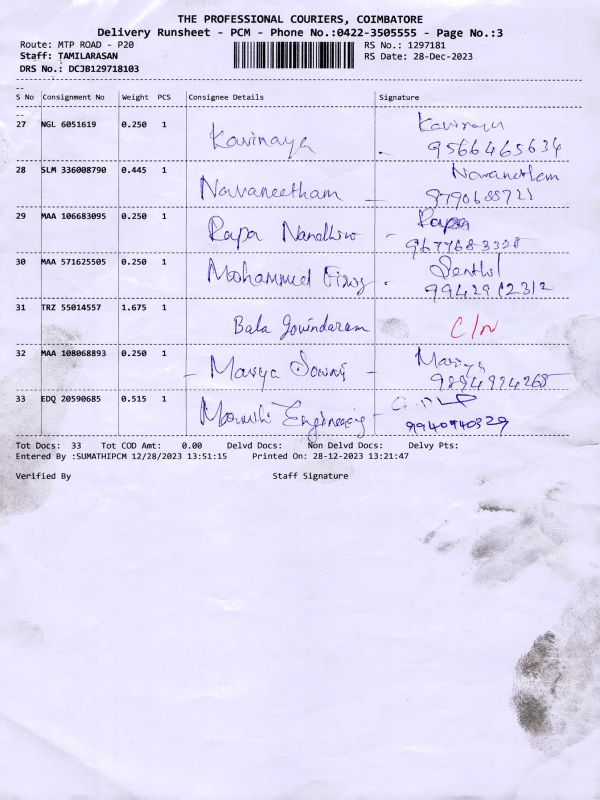 THE PROFESSIONAL COURIERS, COIMBATORE
Delivery Runsheet - PCM - Phone No.:0422-3505555 - Page No.:3
Route: MTP ROAD - P20 RS No.: 1297181
Staff: TAMILARASAN RS Date: 28-Dec-2023
DRS No.: DCJB129718103
S No Consignment No Weight PCS Consignee Details Signature
27 NGL 6051619 0.250 1 Kavinaya
9566465634
28 SLM 336008790 0.445 1 Navaneetham - Navaneetham
29 MAA 106683095 0.250 1 Rapa - Rapa
30 MAA 571625505 0.250 1 Mohammed - Senthil
31 TRZ 55014557 1.675 1 Bala Govindaram C/N
32 MAA 108068893 0.250 1 - Marya -
33 EDQ 20590685 0.515 1 Engineering -
9940940329
Tot Docs: 33 Tot COD Amt: 0.00 Delvd Docs: Non Delvd Docs: Delvy Pts:
Entered By :SUMATHIPCM 12/28/2023 13:51:15 Printed On: 28-12-2023 13:21:47
Verified By Staff Signature